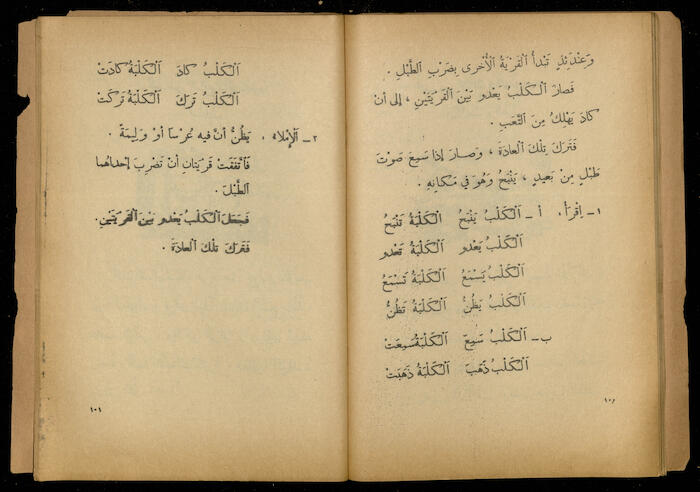 وَعِنْدَئِذٍ تَبْدَأُ ٱلْقَرْيَةُ ٱلْأُخْرَى بِضَرْبِ ٱلطَّبْلِ .
فَصارَ ٱلْكَلْبُ يَعْدُو بَيْنَ ٱلْقَرْيَتَيْنِ ، إِلى أَنْ
كادَ يَهْلِكُ مِنَ ٱلتَّعَبِ .
فَتَرَكَ تِلْكَ ٱلْعادَةَ ، وَصارَ إِذا سَمِعَ صَوْتَ
طَبْلٍ مِنْ بَعِيدٍ ، يَنْبَحُ وَهُوَ فِي مَكانِهِ .
١ـ اِقْرَأْ . أ ـ ٱلْكَلْبُ يَنْبَحُ ٱلْكَلْبَةُ تَنْبَحُ
ٱلْكَلْبُ يَعْدُو ٱلْكَلْبَةُ تَعْدُو
ٱلْكَلْبُ يَسْمَعُ ٱلْكَلْبَةُ تَسْمَعُ
ٱلْكَلْبُ يَظُنُّ ٱلْكَلْبَةُ تَظُنُّ
ب ـ ٱلْكَلْبُ سَمِعَ ٱلْكَلْبَةُ سَمِعَتْ
ٱلْكَلْبُ ذَهَبَ ٱلْكَلْبَةُ ذَهَبَتْ
ٱلْكَلْبُ كادَ ٱلْكَلْبَةُ كادَتْ
ٱلْكَلْبُ تَرَكَ ٱلْكَلْبَةُ تَرَكَتْ
٢ـ ٱلْإِمْلاء . يَظُنُّ أَنَّ فيهِ عُرْساً أَوْ وَلِيمَةً .
فَٱتَّفَقَتْ قَرْيَتانِ أَنْ تَضْرِبَ إِحْداهُما
ٱلطَّبْلَ .
فَجَعَلَ ٱلْكَلْبُ يَعْدُو بَيْنَ ٱلْقَرْيَتَيْنِ .
فَتَرَكَ تِلْكَ ٱلْعادَةَ .
١٠١